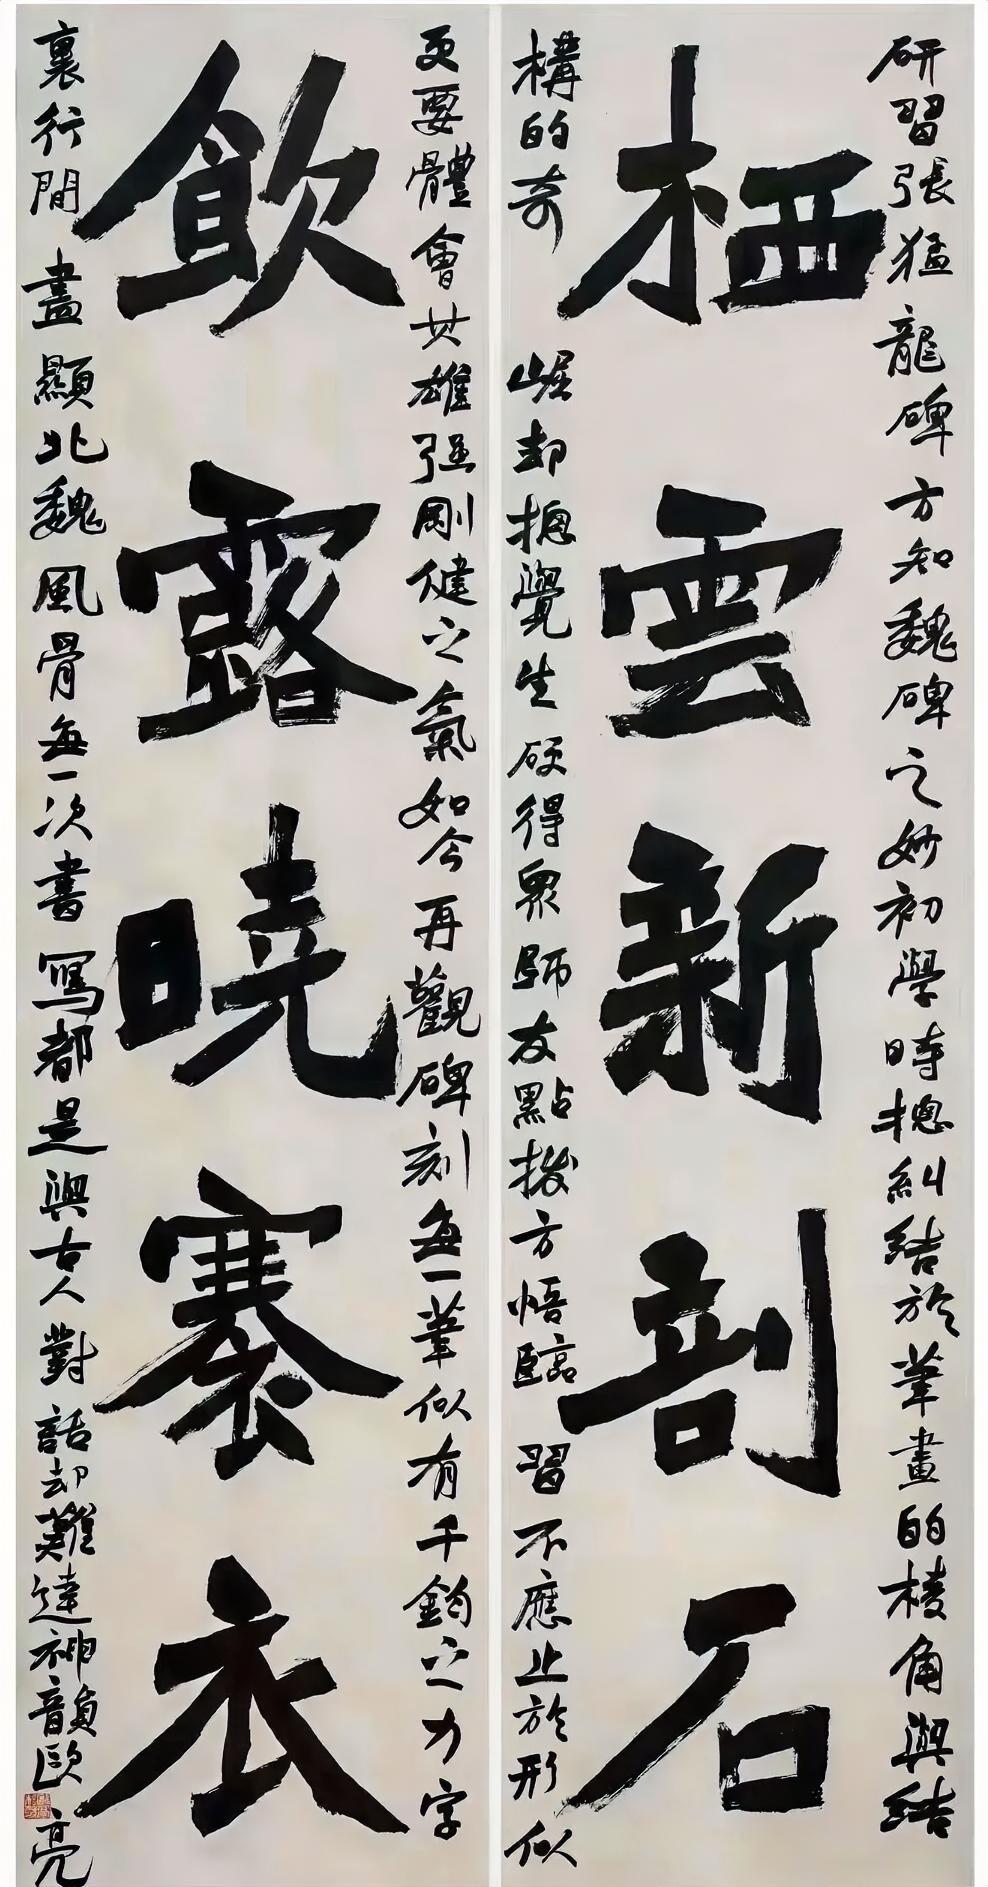 栖雲新剖石
飲露曉褰衣
研習張猛龍碑方知魏碑之妙初學時摠糾結於筆畫的棱角與結
構的奇崛却摠覺生硬得衆師友點撥方悟臨習不應止於形似
更要體會其雄强剛健之氣如今再觀碑刻每一筆似有千鈞之力字
裏行間盡顯北魏風骨每一次書寫都是與古人對話却難達神韻歐亮